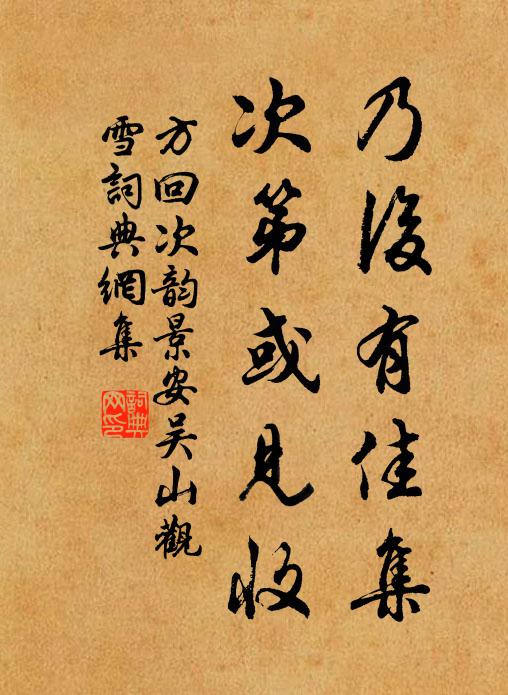 乃後有佳集
次第或見收
方回次韵景安吴山觀
雪詞典網集
詞典网印